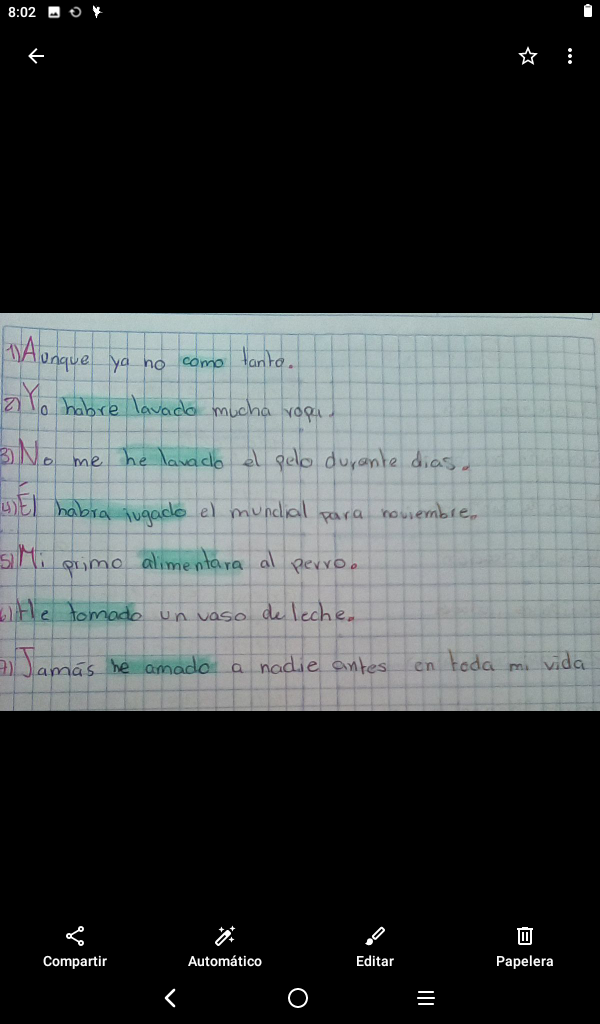 8:02
1) Aunque ya no como tanto.
2) Yo habre lavado mucha ropa.
3) No me he lavado el pelo durante dias.
4) Él habra jugado el mundial para noviembre.
5) Mi primo alimentara al perro.
6) He tomado un vaso de leche.
7) Jamás he amado a nadie antes en toda mi vida
Compartir Automático Editar Papelera